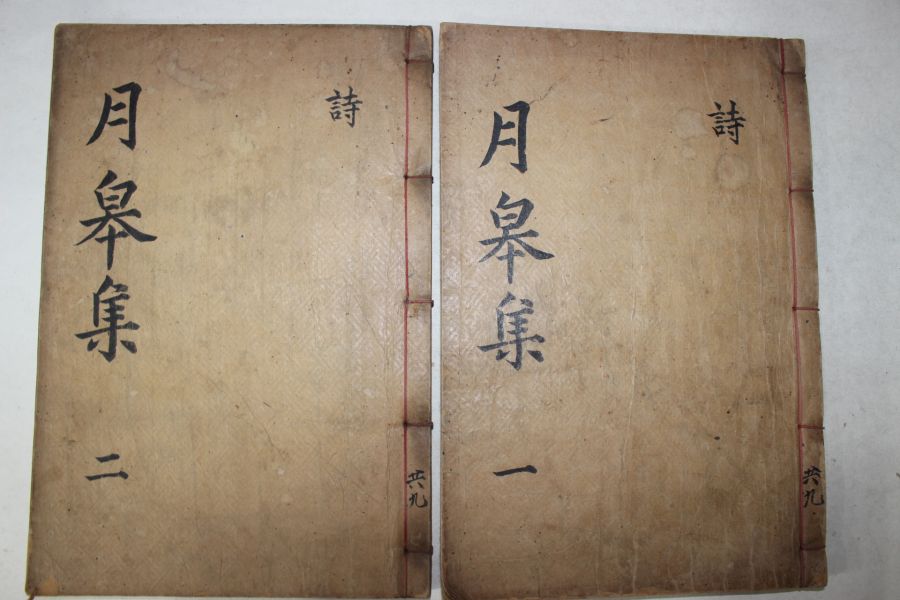 月皋集
二
詩
共九
月皋集
一
詩
共九